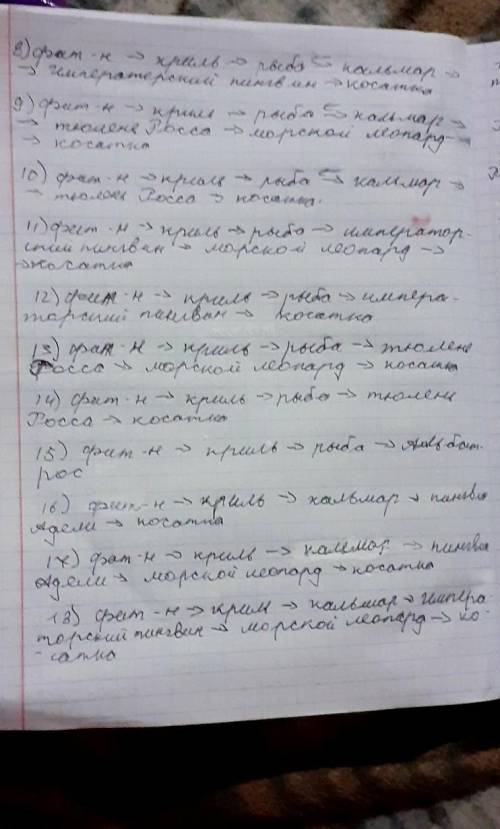 8) фит-н → криль → рыба ⇆ кальмар →
→ императерский пингвин → косатка
9) фит-н → криль → рыба ⇆ кальмар →
→ тюлене Росса → морской леопард →
→ косатка
10) фит-н → криль → рыба ⇆ кальмар →
→ тюлень Росса → косатка.
11) фит-н → криль → рыба → император-
ский пингвин → морской леопард →
→ косатка
12) фит-н → криль → рыба → импера-
торский пингвин → косатка
13) фит-н → криль → рыба → тюлене
Росса → морской леопард → косатка
14) фит-н → криль → рыба → тюлене
Росса → косатка
15) фит-н → криль → рыба → Альбат-
рос
16) фит-н → криль → кальмар → пингвин
Адели → косатка
17) фит-н → криль → кальмар → пингвин
Адели → морской леопард → косатка
18) фит-н → криль → кальмар → импера-
торский пингвин → морской леопард → ко-
-сатка